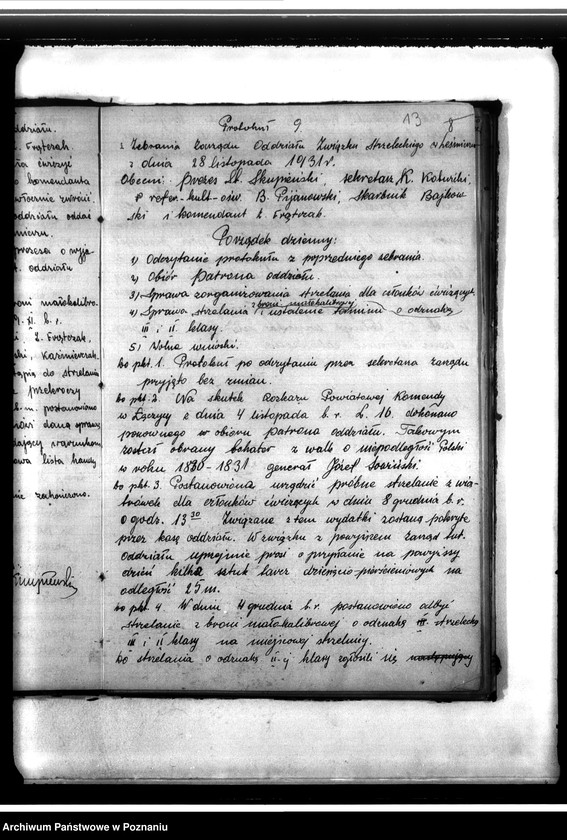 oddziału.
. Frątczak.
ła ćwiczyć
o komendanta
oddziału oddai
prezesa o wyje-
t. oddziału
broni małokalibro.
i, Ł. Frątczak,
i, Kaźmierczak.
tąpić do strzelania
z przekroczy
b. m. postanowiono
dający warunkom
owa lista handy
nie zakończono.
Protokuł 9.
13
8
z Zebrania Zarządu Oddziału Związku Strzeleckiego w Leśmierzu
z dnia 28 listopada 1931 r.
Obecni: prezes St. Skupieński, sekretarz K. Koturski,
ref. kult-ośw. B. Pijanowski, skarbnik Bajkow-
ski i komendant Ł. Frątczak.
Porządek dzienny:
1) Odczytanie protokułu z poprzedniego zebrania.
2) Obiór patrona oddziału.
3) Sprawa zorganizowania strzelania dla członków ćwiczących
4) Sprawa strzelania z broni małokalibrowej i ustalenie terminu o odznakę
III i II klasy.
5) Wolne wnioski.
Do pkt. 1. Protokuł po odczytaniu przez sekretarza zarządu
przyjęto bez zmian.
Do pkt. 2. Na skutek rozkazu Powiatowej Komendy
w Łęczycy z dnia 4 listopada b. r. L. 16. dokonano
ponownego w obioru patrona oddziału. Takowym
został obrany bohater z walk o niepodległość Polski
w roku 1830-1831 generał Józef Sowiński.
Do pkt. 3. Postanowiono urządzić próbne strzelanie z wia-
trówek dla członków ćwiczących w dniu 8 grudnia b. r.
o godz. 13 30 Związane z tem wydatki zostaną pokryte
przez kasę oddziału. W związku z powyższem zarząd tut.
oddziału uprzejmie prosi o przysłanie na powyższy
dzień kilka sztuk tarcz dziesięcio-pierścieniowych na
odległość 25 m.
Do pkt. 4. W dniu 4 grudnia b. r. postanowiono odbyć
strzelanie z broni małokalibrowej o odznakę strzelecką
III i II klasy na miejscowej strzelnicy.
Do strzelania o odznakę II-ej klasy zgłosili się następujący
Archiwum Państwowe w Poznaniu